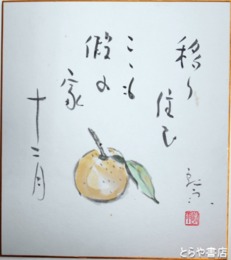 移り
住む
ここも
假の
家
十二月
とらや書店